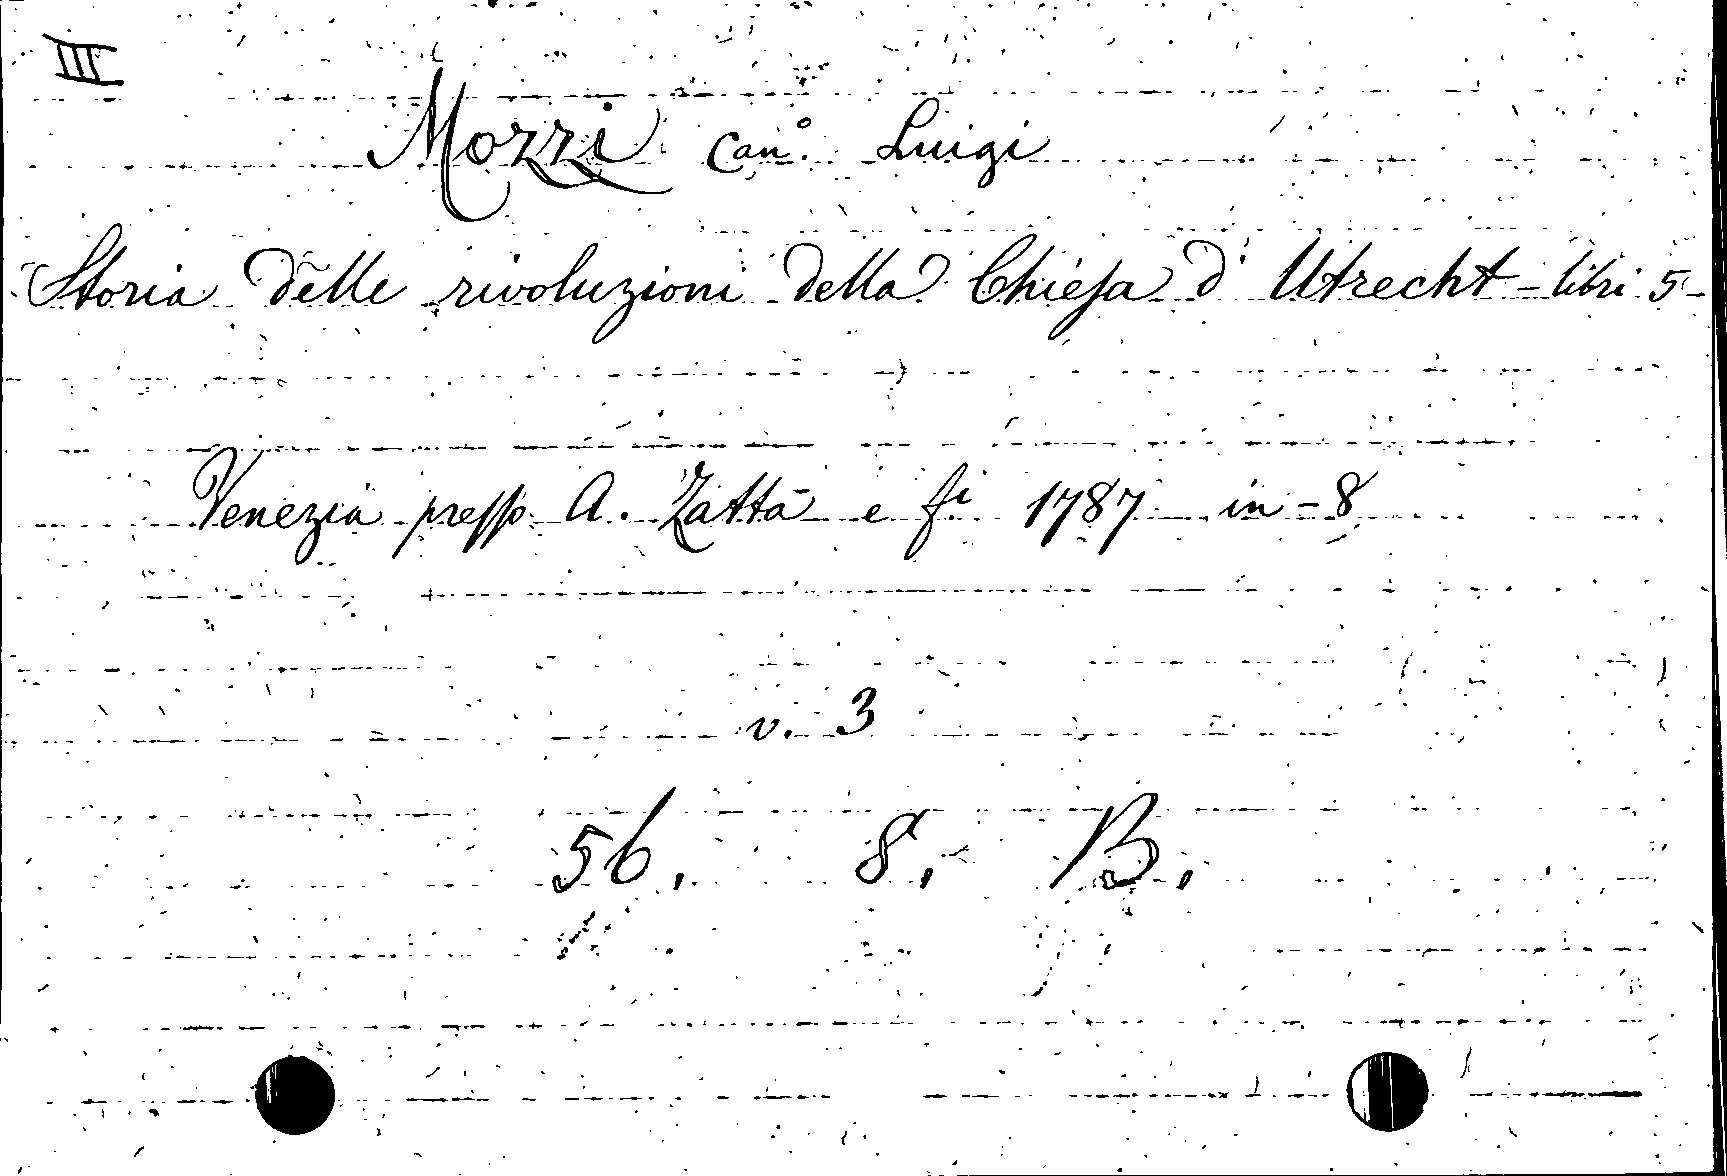 III
Mozzi Can.º Luigi
Storia delle rivoluzioni della Chiesa d' Utrecht - libri 5 -
Venezia presso A. Zatta e fi 1787 in - 8
v. 3
56. 8. B.